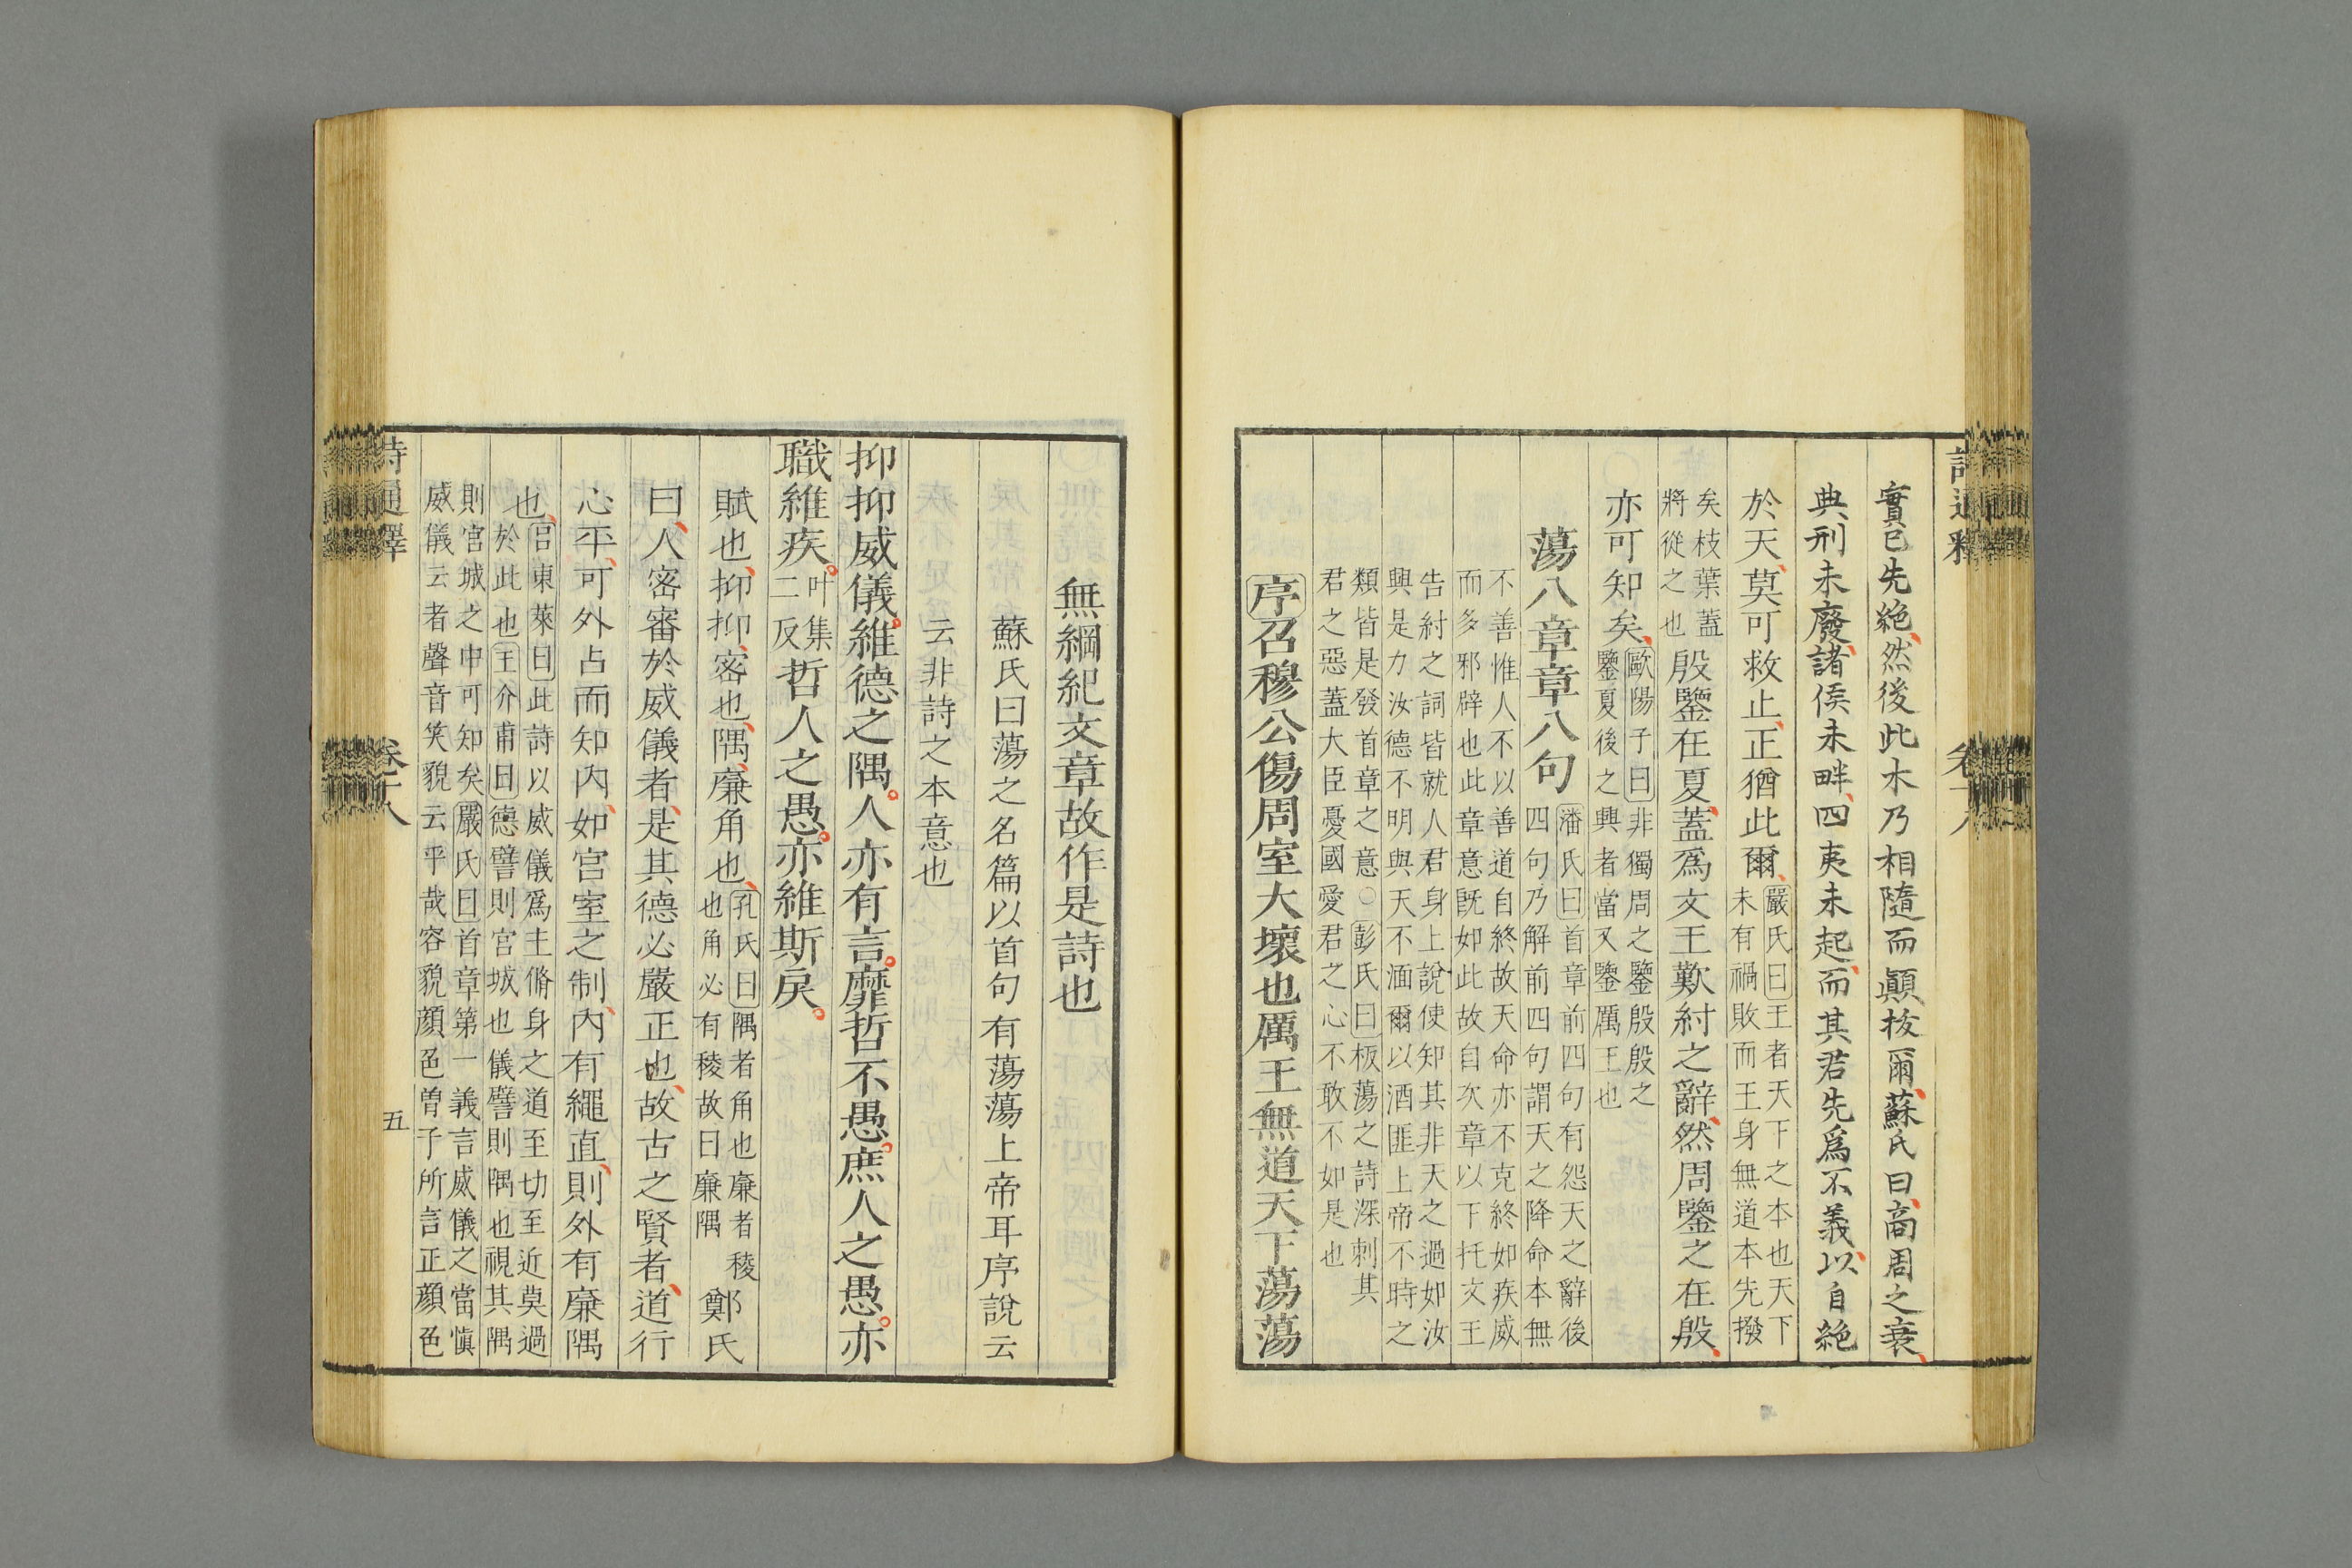 實已先絶然後此木乃相隨而顚拔爾蘇氏曰商周之衰
典刑未廢諸侯未畔四夷未起而其君先爲不義以自絶
於天莫可救止正猶此爾嚴氏曰王者天下之本也天下
未有禍敗而王身無道本先撥
矣枝葉蓋
將從之也殷鑒在夏蓋爲文王歎紂之辭然周鑒之在殷
亦可知矣歐陽子曰非獨周之鑒殷殷之
鑒夏後之興者當又鑒厲王也
蕩八章章八句潘氏曰首章前四句有怨天之辭後
四句乃解前四句謂天之降命本無
不善惟人不以善道自終故天命亦不克終如疾威
而多邪辟也此章意既如此故自次章以下托文王
告紂之詞皆就人君身上說使知其非天之過如汝
興是力汝德不明與天不湎爾以酒匪上帝不時之
類皆是發首章之意○彭氏曰板蕩之詩深刺其
君之惡蓋大臣憂國愛君之心不敢不如是也
序召穆公傷周室大壞也厲王無道天下蕩蕩
無綱紀文章故作是詩也
蘇氏曰蕩之名篇以首句有蕩蕩上帝耳序說云
云非詩之本意也
抑抑威儀維德之隅人亦有言靡哲不愚庶人之愚亦
職維疾叶集
二反哲人之愚亦維斯戾
賦也抑抑密也隅廉角也孔氏曰隅者角也廉者稜
也角必有稜故曰廉隅鄭氏
曰人密審於威儀者是其德必嚴正也故古之賢者道行
心平可外占而知内如宮室之制内有繩直則外有廉隅
也呂東萊曰此詩以威儀爲主脩身之道至切至近莫過
於此也王介甫曰德譬則宮城也儀譬則隅也視其隅
則宮城之中可知矣嚴氏曰首章第一義言威儀之當愼
威儀云者聲音笑貌云乎哉容貌顔色曽子所言正顔色
詩通釋
卷十八
五